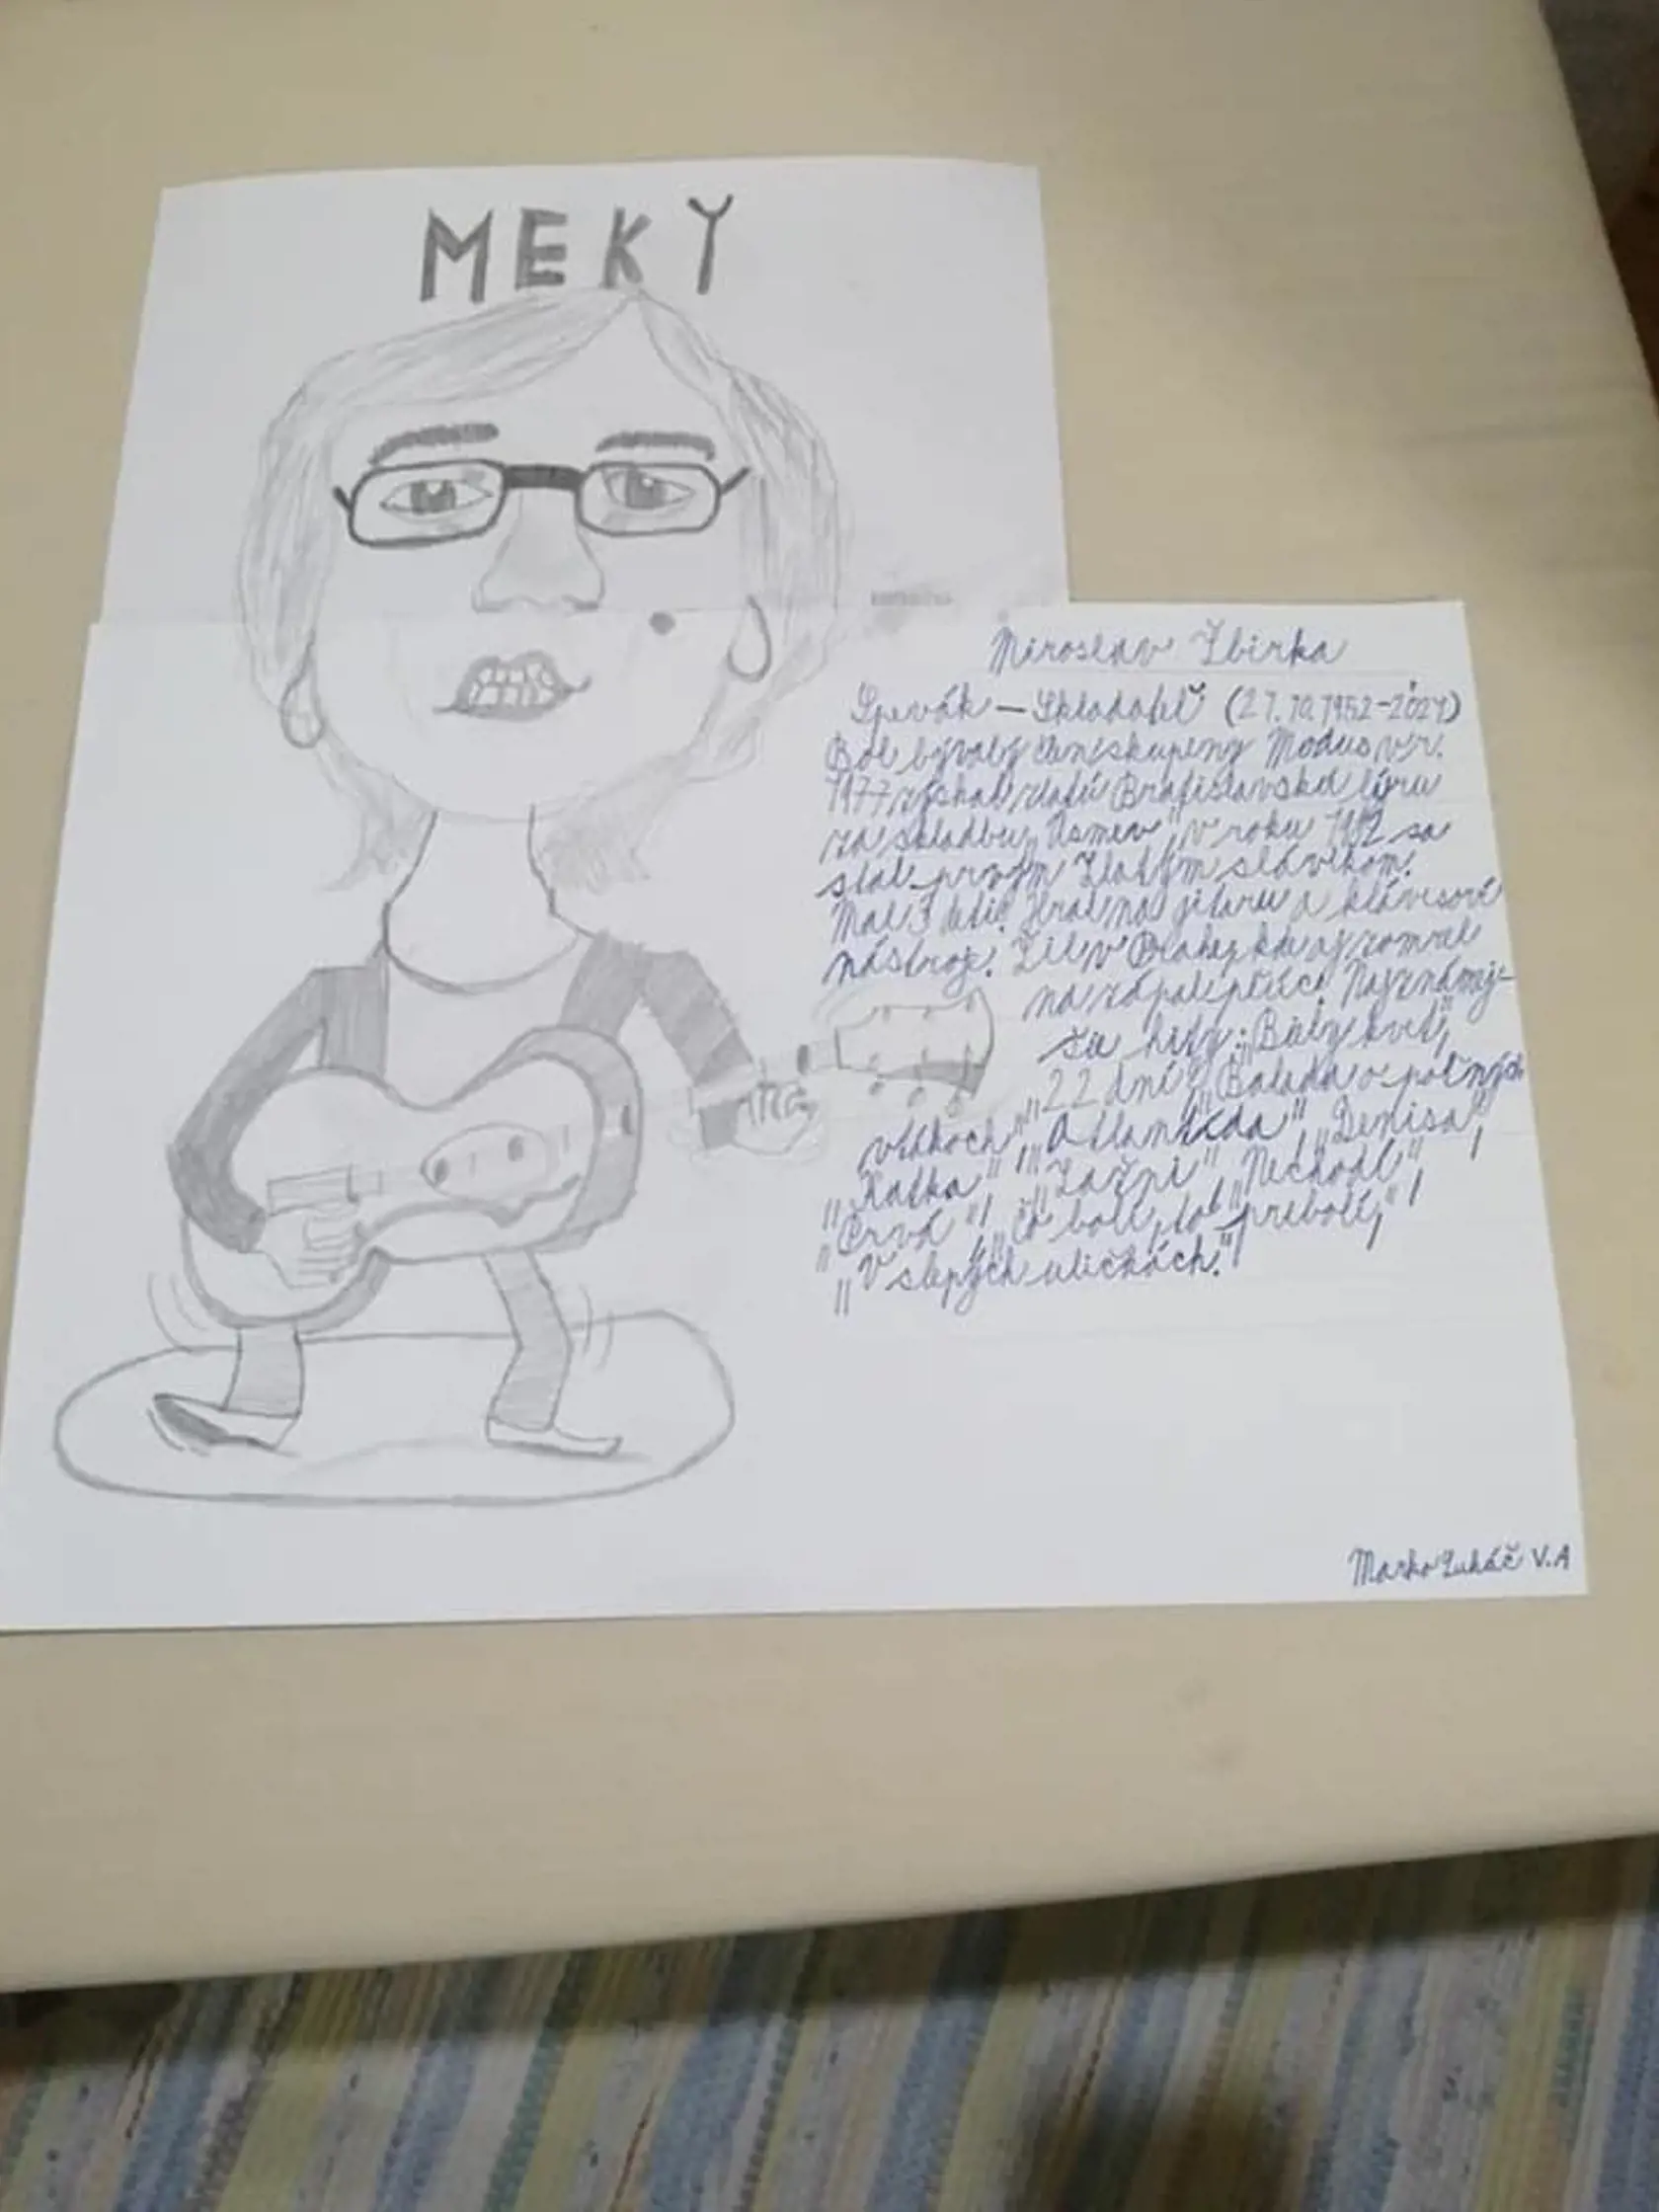 MEKY
Miroslav Žbirka
Spevák – Skladateľ (21.10.1952-2021)
Bol bývalý člen skupiny Modus v r.
1977 získal zlatú Bratislavskú lýru
za skladbu „Úsmev", v roku 1982 sa
stal prvým Zlatým slávikom.
Mal 3 deti. Hral na gitaru a klávesové
nástroje. Žil v Prahe, kde aj zomrel
na zápal pľúc. Najznámej-
šie hity: „Biely kvet",
„22 dní", „Balada o poľných
vtákoch", „Atlantída", „Denisa",
„Katka", „Zažni", „Nechodí",
„Prvá", „Čo bolí, to prebolí",
„V slepých uličkách."
Marko Lukáč V.A